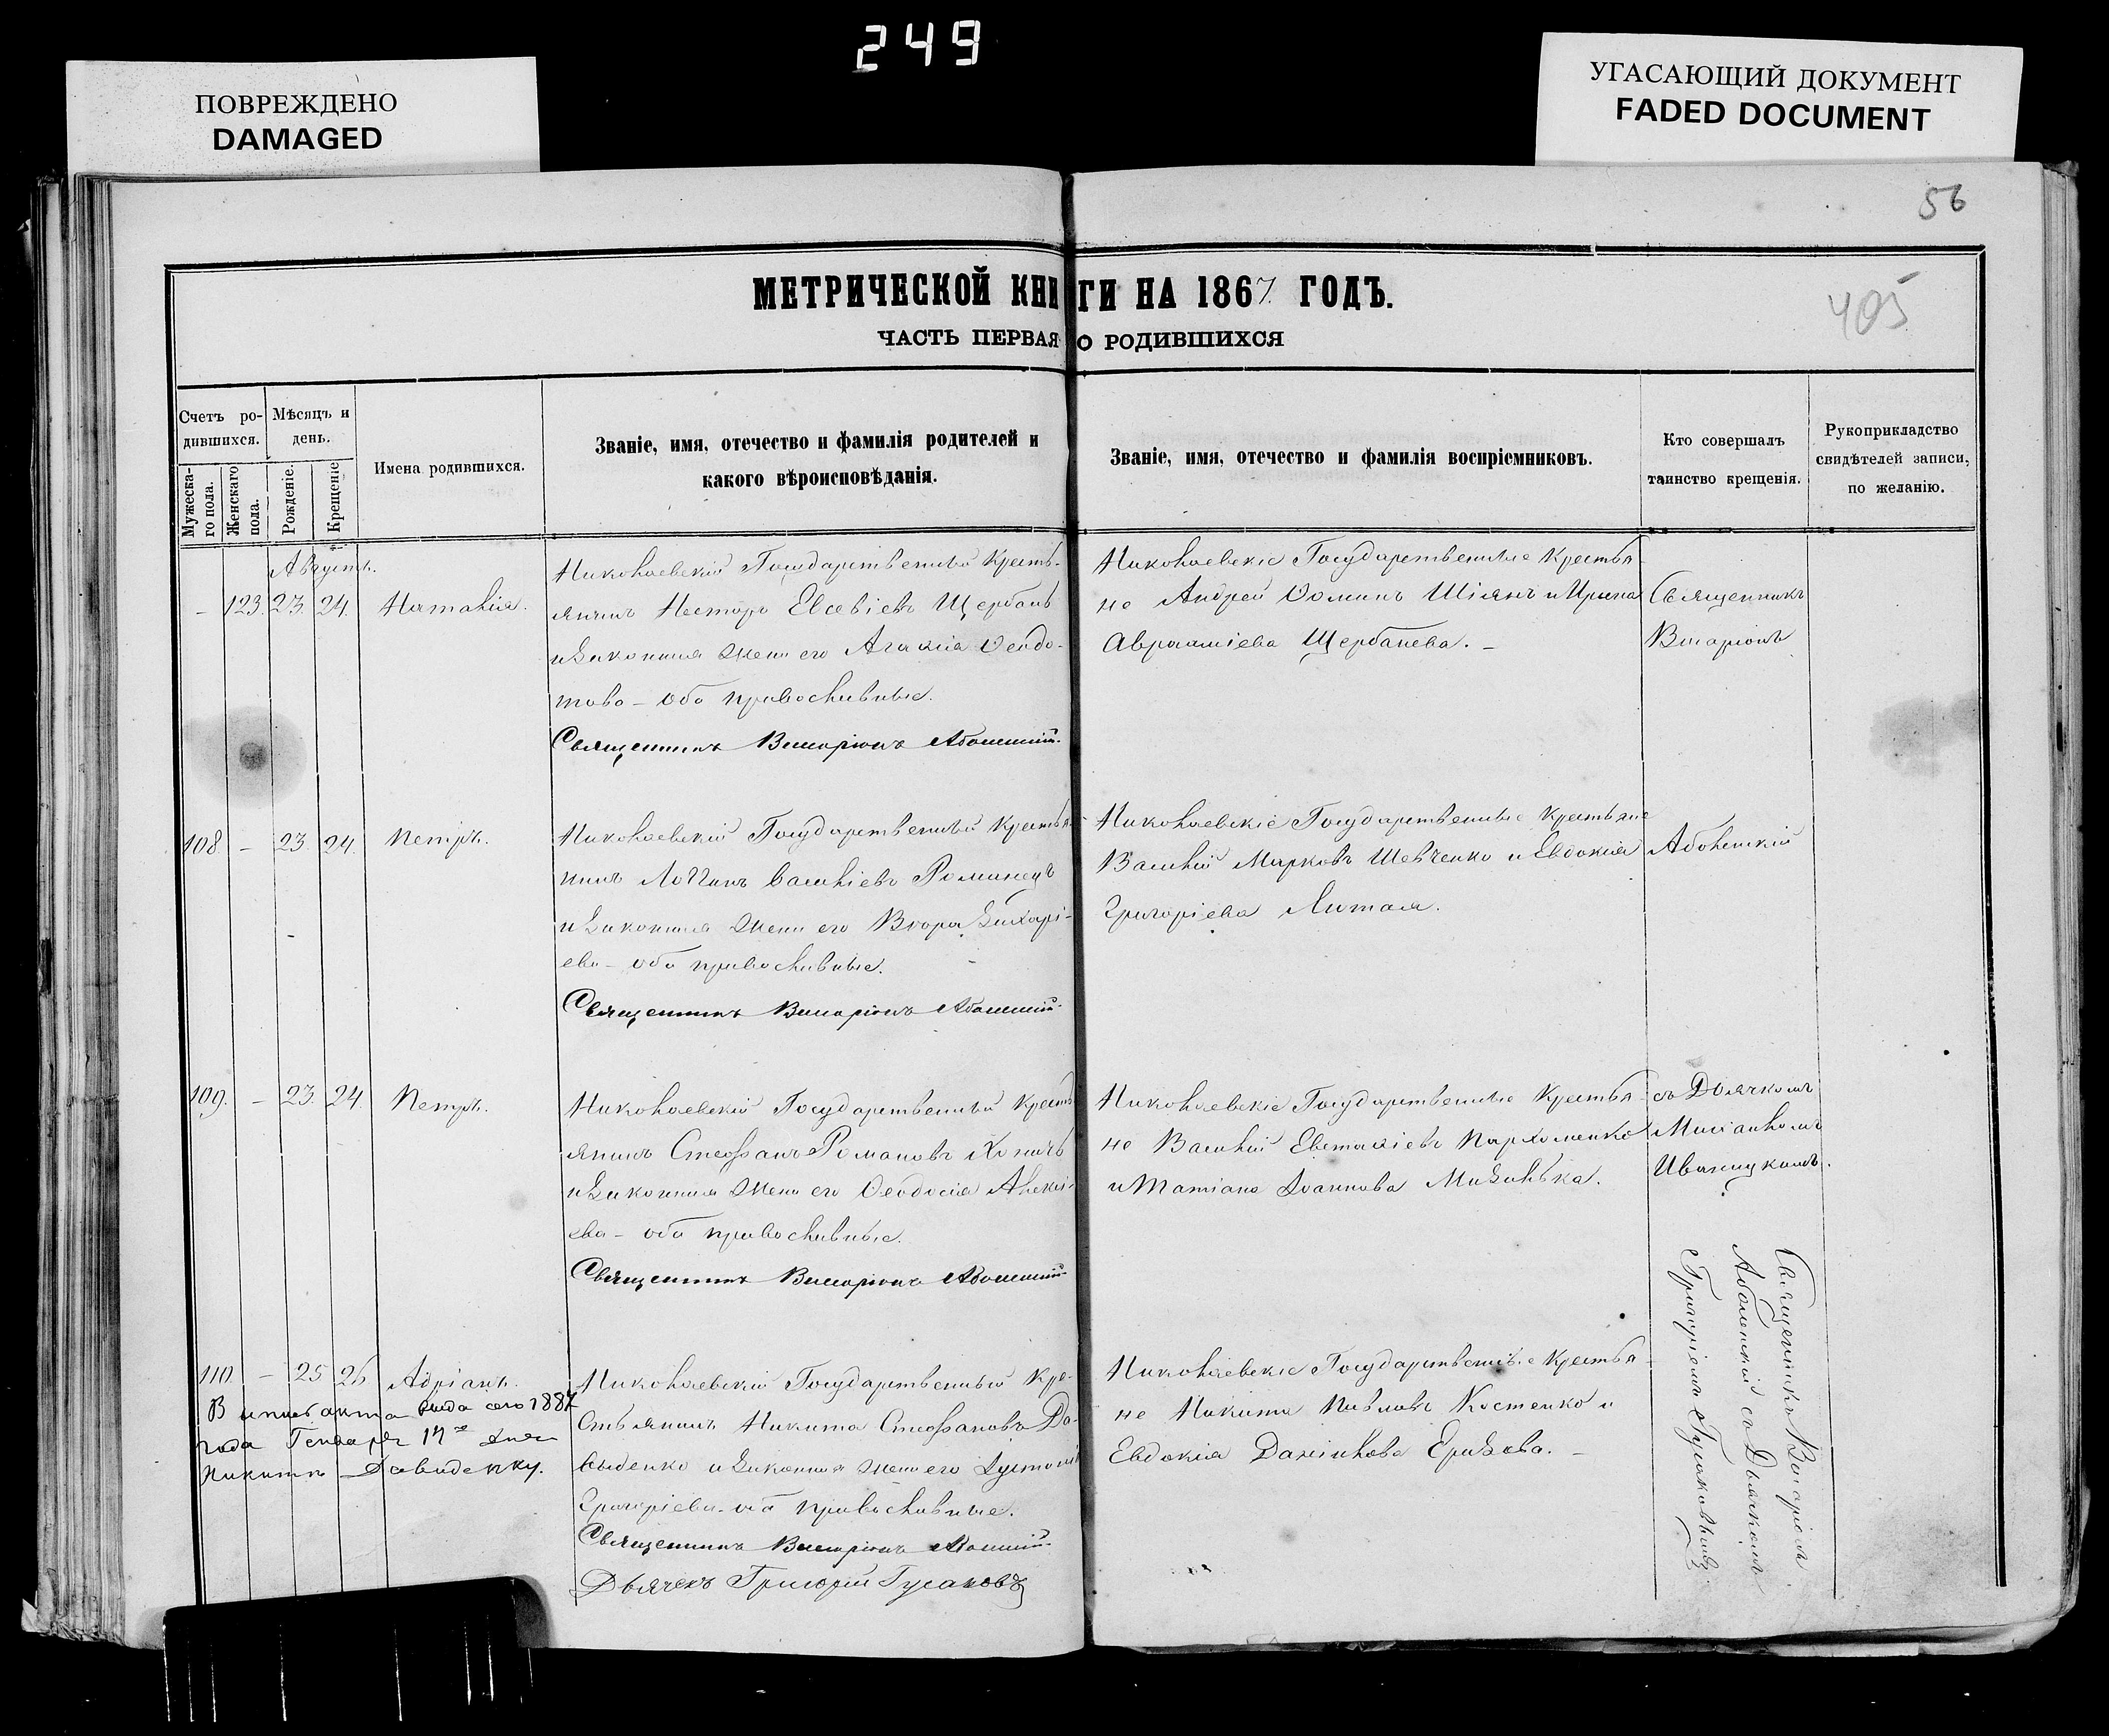 249
ПОВРЕЖДЕНО
DAMAGED
УГАСАЮЩИЙ ДОКУМЕНТ
FADED DOCUMENT
56
405
МЕТРИЧЕСКОЙ КНИГИ НА 1867 ГОДЪ.
ЧАСТЬ ПЕРВАЯ О РОДИВШИХСЯ
Счетъ ро-
дившихся.
Мѣсяцъ и
день.
Мужеска-
го пола.
Женскаго
пола.
Рожденіе.
Крещеніе
Имена родившихся.
Званіе, имя, отечество и фамилія родителей и
какого вѣроисповѣданія.
Званіе, имя, отечество и фамилія воспріемниковъ.
Кто совершалъ
таинство крещенія.
Рукоприкладство
свидѣтелей записи,
по желанію.
Августъ.
– 123. 23. 24. Наталія.
Николаевскій Государственный Кресть-
янинъ Несторъ Евсевіевъ Щербань
и законная жена его Агафія Ѳеодо-
това – оба православные.
Священникъ Виссаріонъ Аболенскій.
Николаевскіе Государственные Крестья-
не Андрей Ѳоминъ Шілянъ и Ирина
Авраміева Щербанева. –
Священникъ
Висаріонъ
108. – 23. 24. Петръ.
Николаевскій Государственный Крестья-
нинъ Логгинъ Василіевъ Романецъ
и законная жена его Вѣра Захарі-
ева – оба православные.
Священникъ Виссаріонъ Аболенскій.
Николаевскіе Государственные Крестьяне
Василій Марковъ Шевченко и Евдокія
Григоріева Лытая.
Аболенскій
109. – 23. 24. Петръ.
Николаевскій Государственный Кресть-
янинъ Стефанъ Романовъ
и законная жена его Ѳеодосія Алексі-
ева – оба православные.
Священникъ Виссаріонъ Аболенскій
Николаевскіе Государственные Крестья-
не Василій Евстафіевъ Пархоменко
и Татіана Іоаннова Мизинька.
съ Дьячкомъ
Иваницкимъ.
110. – 25 26 Адріанъ.
В 1887
года Генваря 17го дня
Никитѣ Давиденку.
Николаевскій Государственный Кре-
стьянинъ Никита Стефановъ Да-
выденко и законная жена его
Григоріева – оба православные.
Священникъ Виссаріонъ Аболенскій.
Дьячекъ Григорій Гусаковъ
Николаевскіе Государственные Крестья-
не Никита Павловъ Костенко и
Евдокія Даніилова Еризова. –
Священникъ Висаріонъ
Аболенскій съ Дьячкомъ
Григоріемъ Гусаковымъ